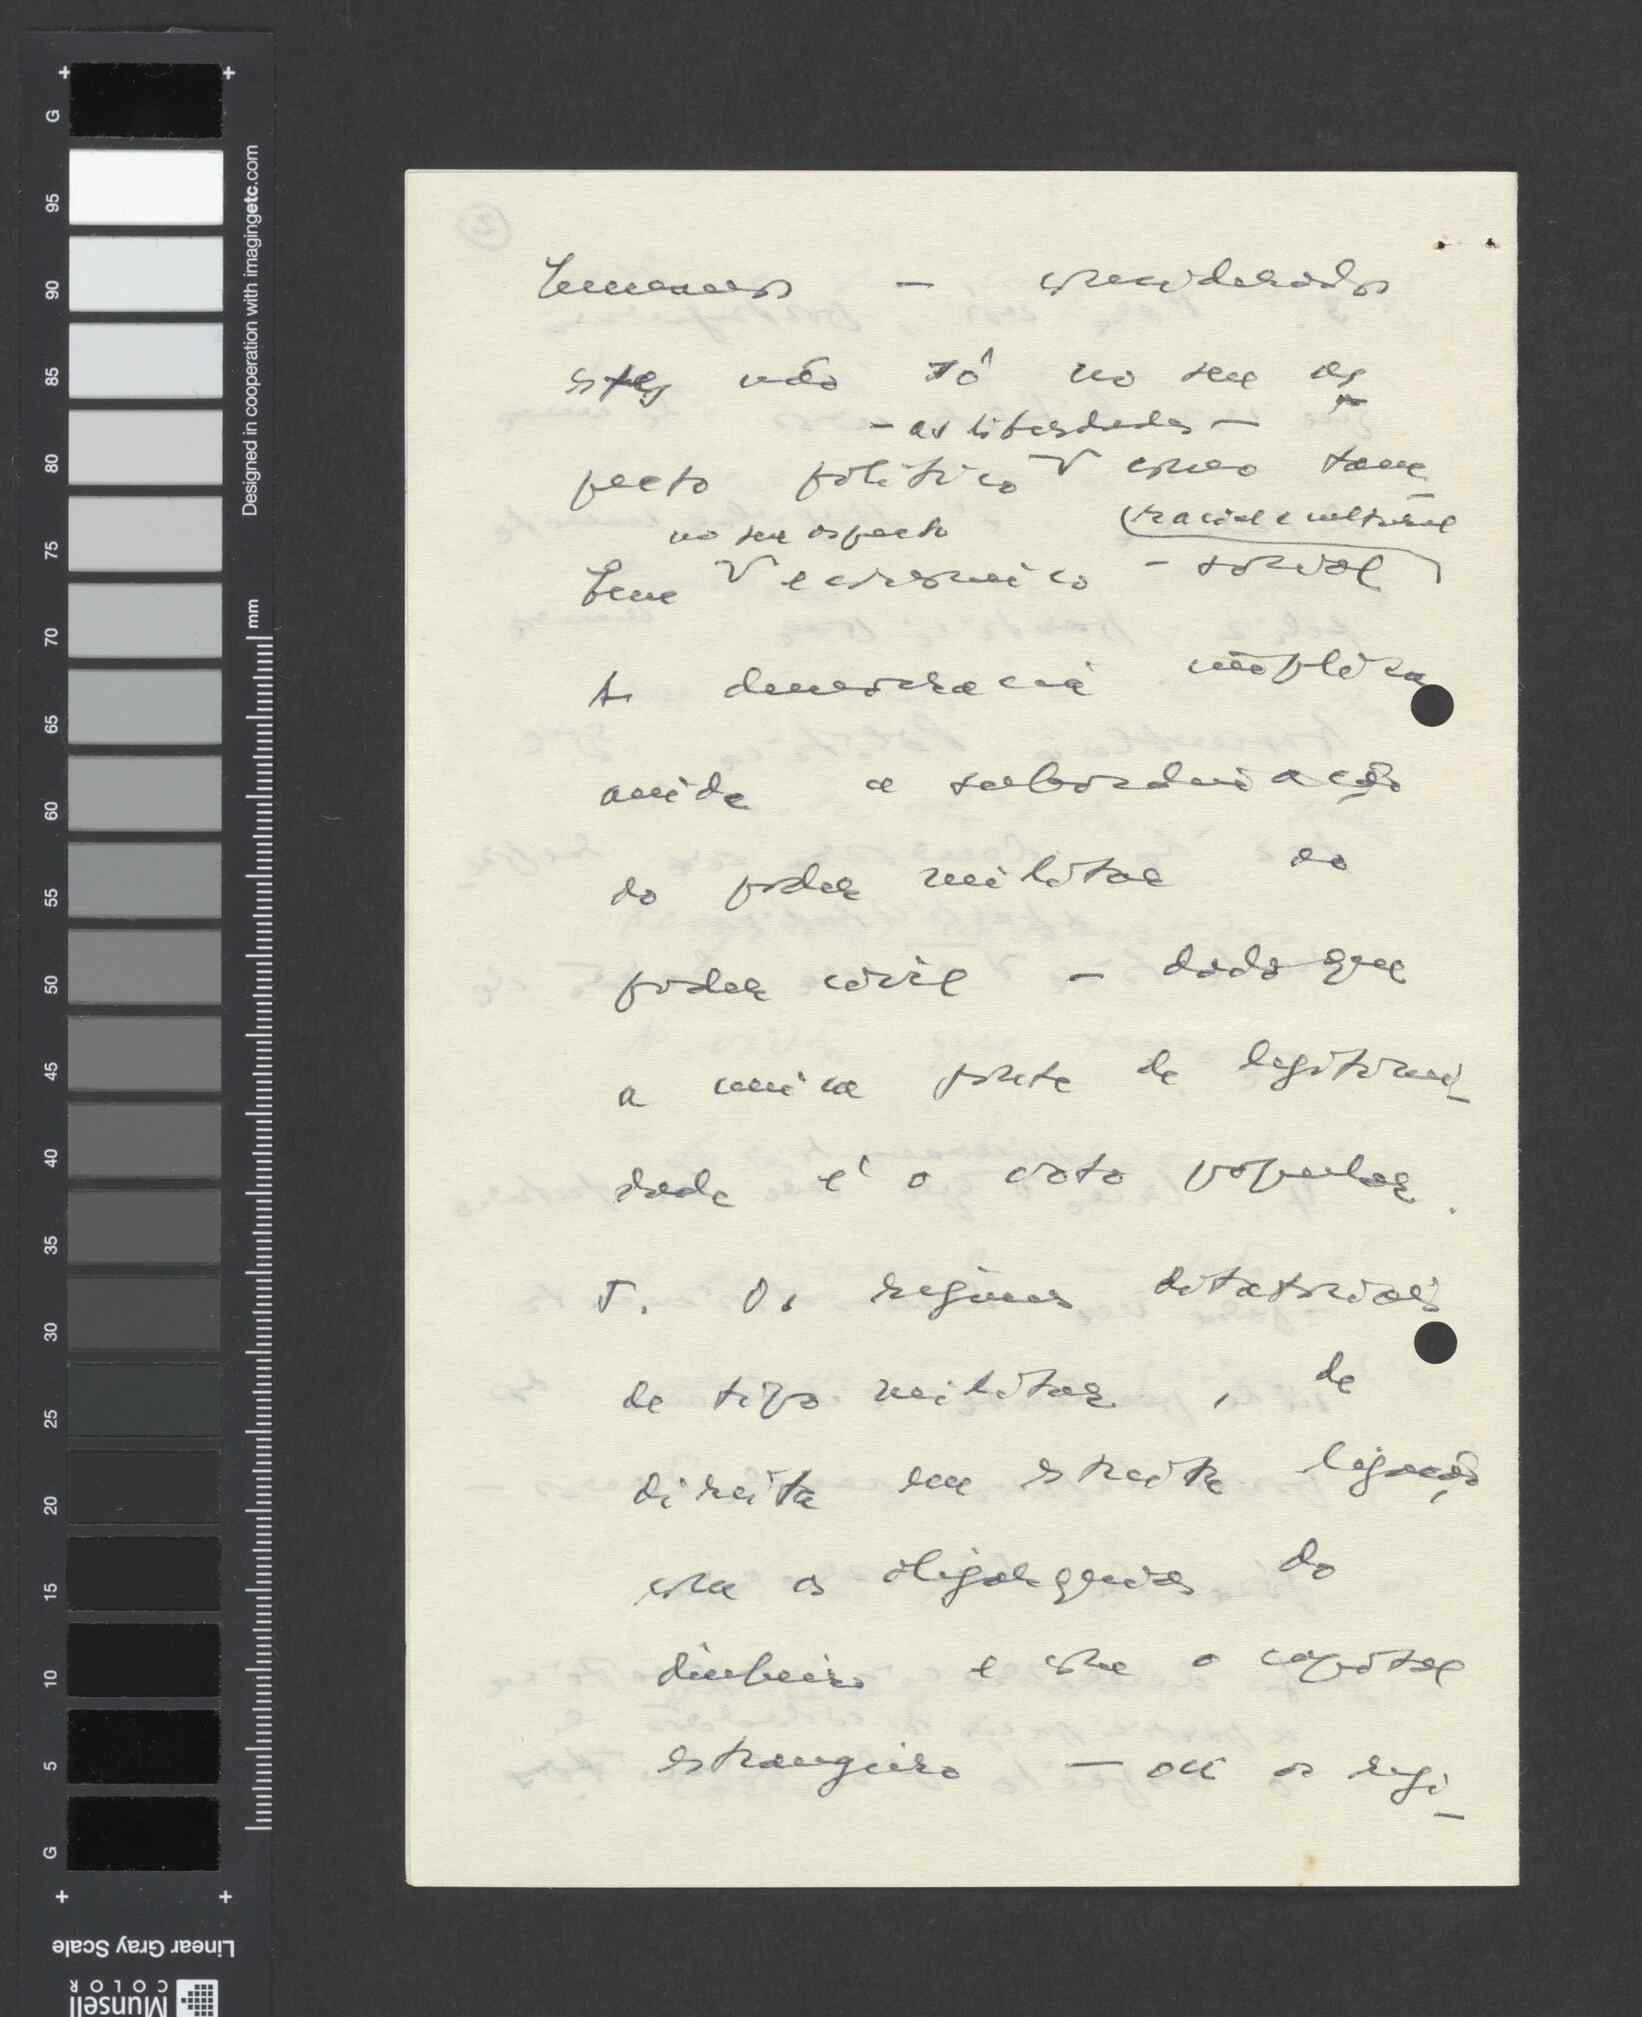 humanos – considerados
estes não só no seu as-
– as liberdades –
pecto político V como tam-
no seu aspecto (racial e cultural
bem V económico – social
A democracia implica
ainda a subordinação
do poder militar ao
poder civil – dado que
a unica fonte de legitimi-
dade é o voto popular.
5. Os regimes ditatoriais
de tipo militar, de
direita em estreita ligação
com as oligarquias do
dinheiro e com o capital
estrangeiro – ou os regi-
G 95 90 85 80 75 70 65 60 55 50 45 40 35 30 25 20 15 10 5 G
Designed in cooperation with imagingetc.com
mm
Linear Gray Scale
Munsell
COLOR